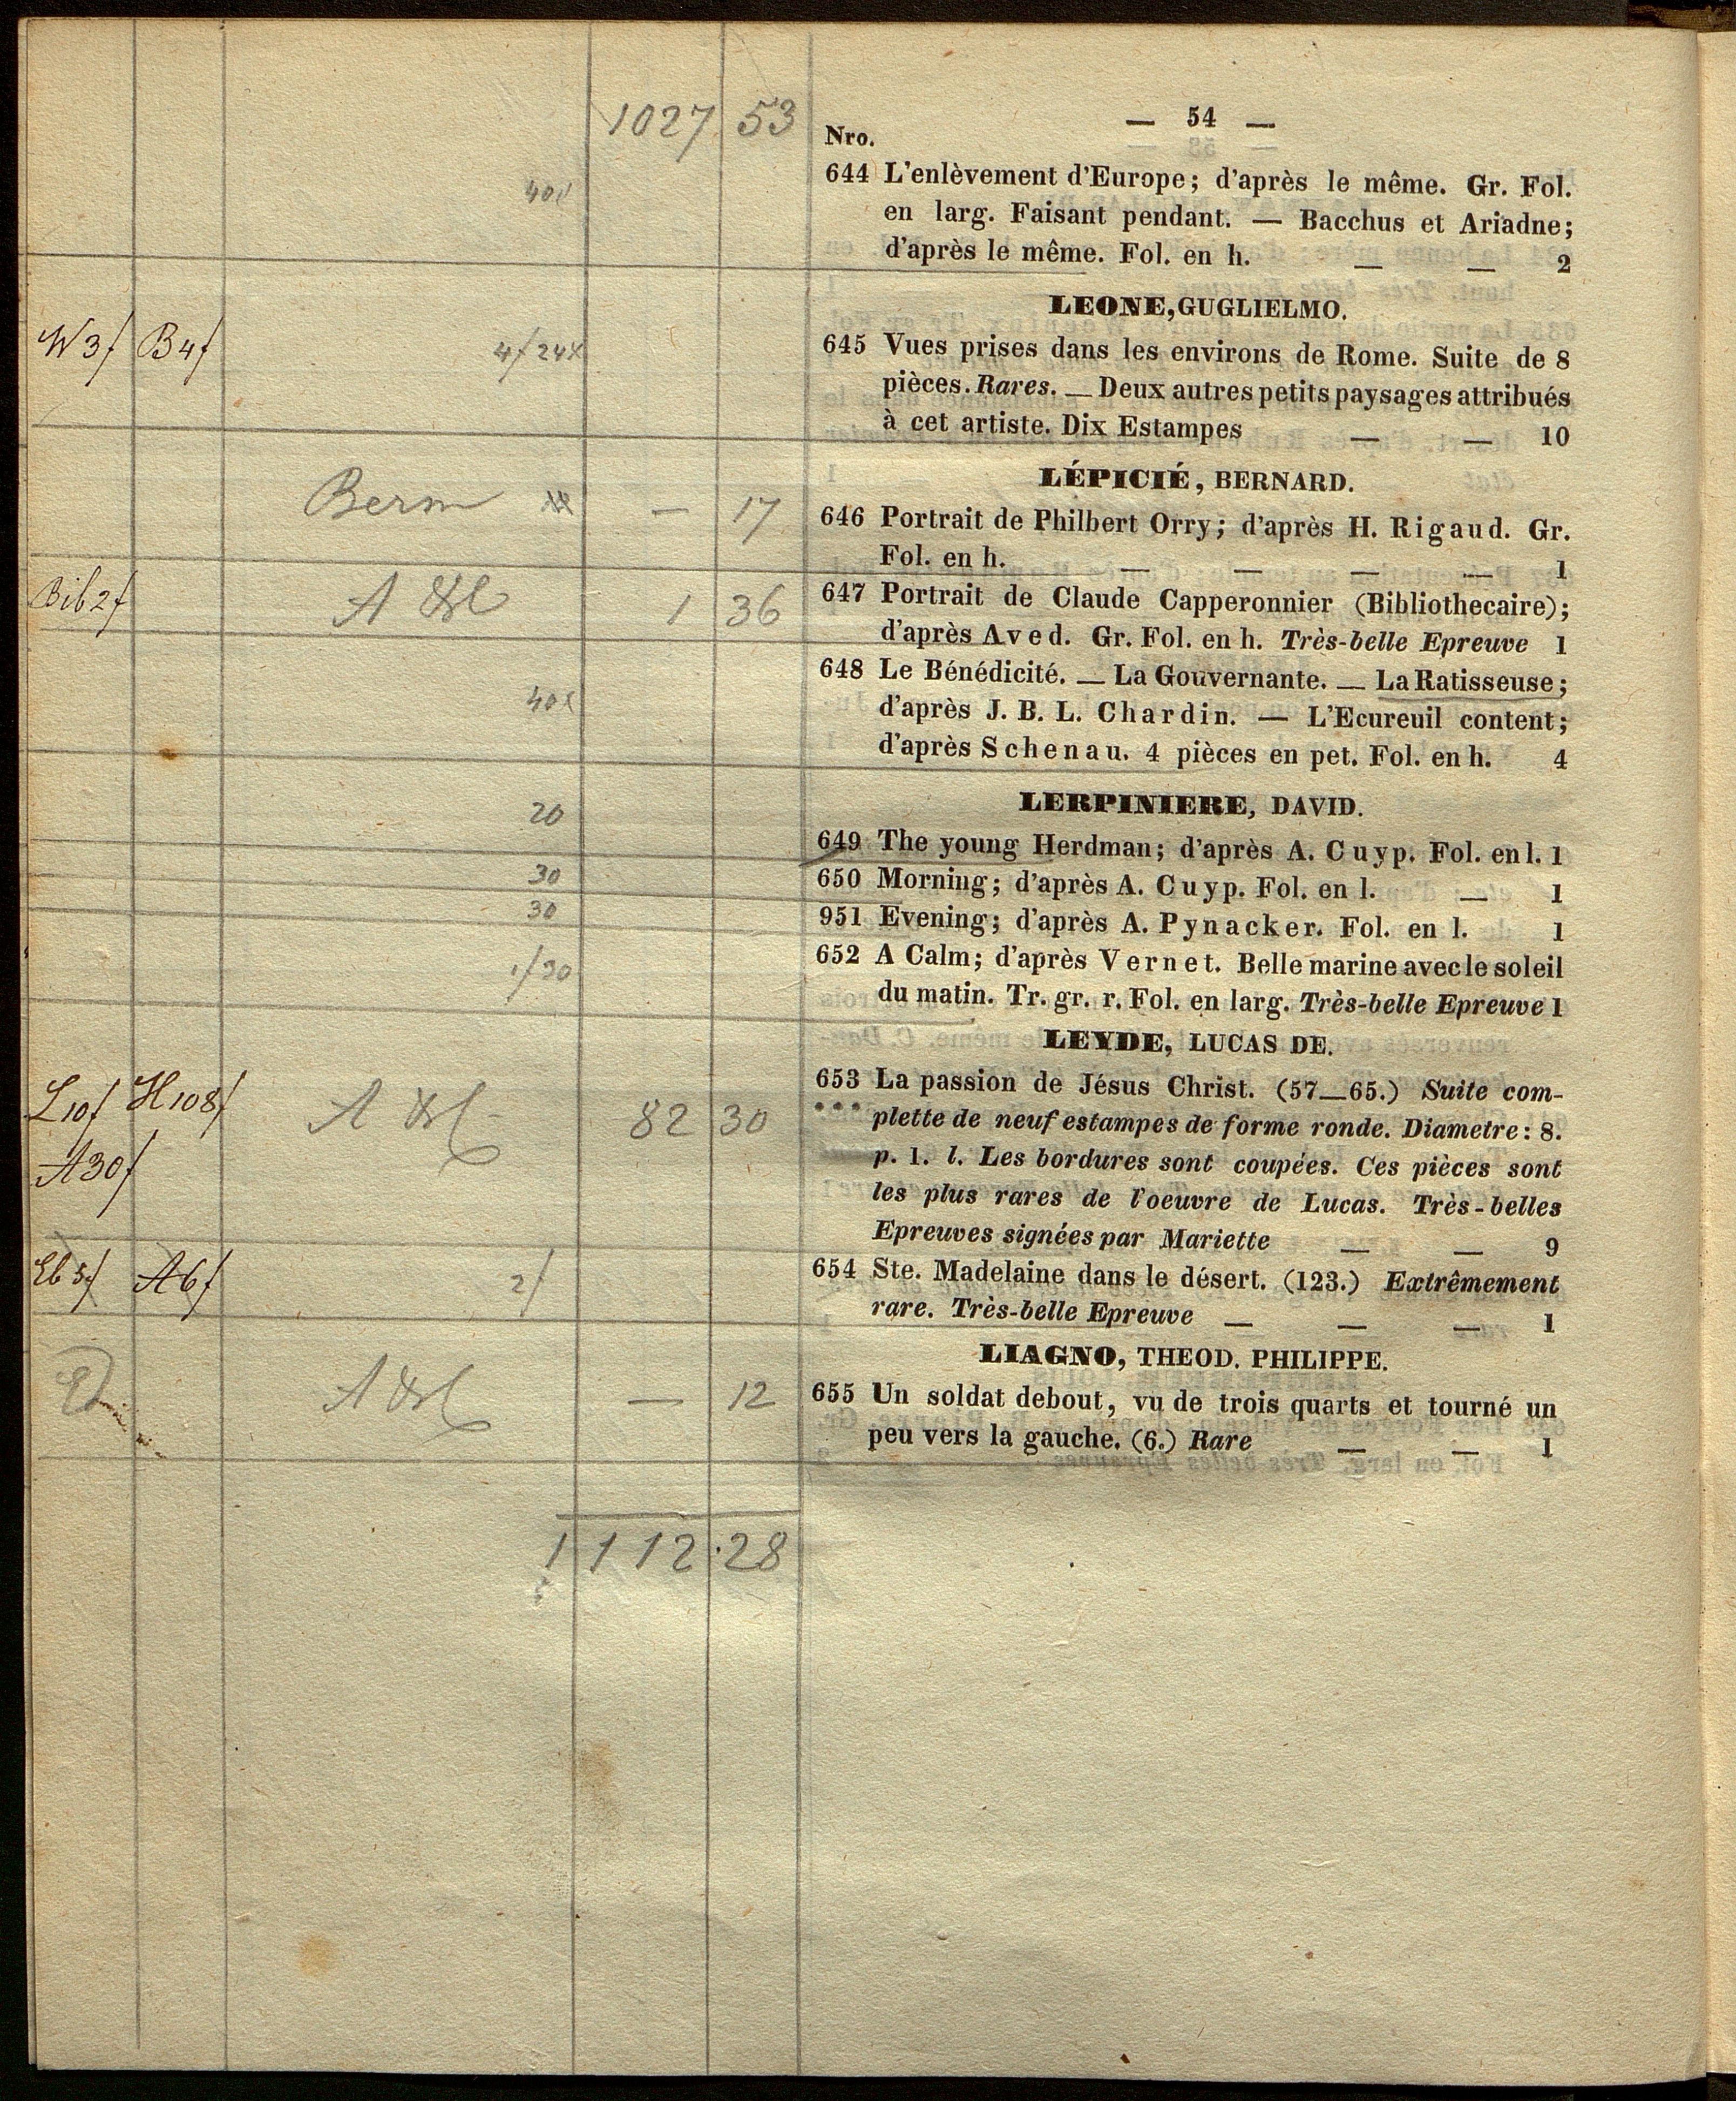 1027 53
— 54 —
Nro.
40x
644 L'enlèvement d'Europe; d'après le même. Gr. Fol.
en larg. Faisant pendant. — Bacchus et Ariadne;
d'après le même. Fol. en h. — — 2
LEONE, GUGLIELMO.
W3f B4f 4f 24x
645 Vues prises dans les environs de Rome. Suite de 8
pièces. Rares. — Deux autres petits paysages attribués
à cet artiste. Dix Estampes — — 10
LÉPICIÉ, BERNARD.
Berm — 17
646 Portrait de Philbert Orry; d'après H. Rigaud. Gr.
Fol. en h. — — — — 1
Bib 2f 1 36
647 Portrait de Claude Capperonnier (Bibliothecaire);
d'après Aved. Gr. Fol. en h. Très-belle Epreuve 1
648 Le Bénédicité. — La Gouvernante. — La Ratisseuse;
40x
d'après J. B. L. Chardin. — L'Ecureuil content;
d'après Schenau. 4 pièces en pet. Fol. en h. 4
LERPINIERE, DAVID.
20
649 The young Herdman; d'après A. Cuyp. Fol. en l. 1
30
650 Morning; d'après A. Cuyp. Fol. en l. — 1
30
951 Evening; d'après A. Pynacker. Fol. en l. 1
1/30
652 A Calm; d'après Vernet. Belle marine avec le soleil
du matin. Tr. gr. r. Fol. en larg. Très-belle Epreuve 1
LEYDE, LUCAS DE.
L10f H108f 82 30
A30f
653 La passion de Jésus Christ. (57—65.) Suite com-
*** plette de neuf estampes de forme ronde. Diametre: 8.
p. 1. l. Les bordures sont coupées. Ces pièces sont
les plus rares de l'oeuvre de Lucas. Très-belles
Epreuves signées par Mariette — — 9
A6f 2f
654 Ste. Madelaine dans le désert. (123.) Extrêmement
rare. Très-belle Epreuve — — — 1
LIAGNO, THEOD. PHILIPPE.
— 12
655 Un soldat debout, vu de trois quarts et tourné un
peu vers la gauche. (6.) Rare — — 1
1112.28